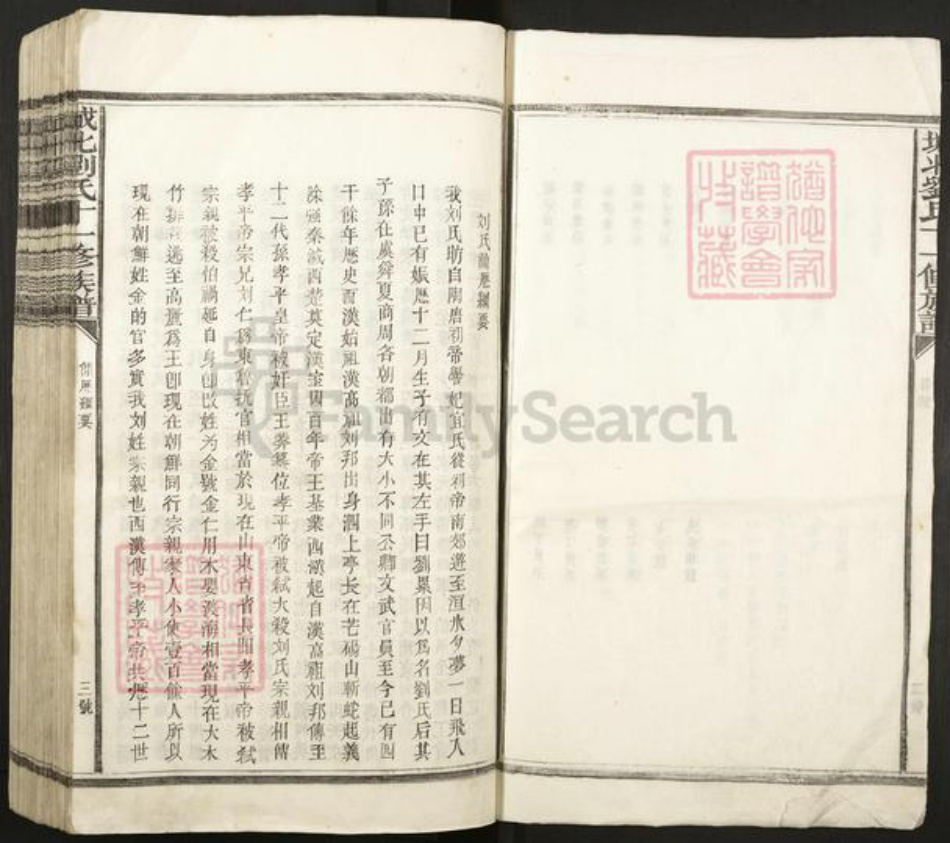 刘氏
我刘氏昉自陶唐初帝喾妃宜氏從祠帝南郊遊至洹水夕夢一日飛入
口中已有娠歷十二月生子有文在其左手曰劉累因以爲名劉氏后其
子孫在虞舜夏商周各朝都出有大小不同公卿文武官員至今已有四
千餘年歷史而漢始祖漢高祖刘邦出身泗上亭長在芒砀山斬蛇起義
除强秦滅西楚奠定漢室四百年帝王基業西漢起自漢高祖刘邦傳至
十二代孫孝平皇帝被奸臣王莽篡位孝平帝被弑大殺刘氏宗親相傳
孝平帝宗兄刘仁爲東魯執官相當於現在山東省省長聞孝平帝被弑
宗親被殺怕禍延自身即改姓为金號金仁用木嬰渡海相當現在大木
竹排逃至高麗爲王卽現在朝鮮同行宗親家人小使壹百餘人所以
現在朝鮮姓金的官多實我刘姓宗親也西漢傳至孝平帝共歷十二世
城北劉氏十一修族譜
三號
FamilySearch